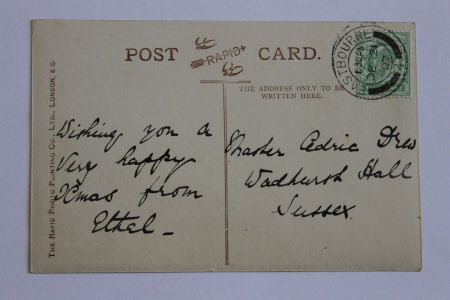 POST CARD.
RAPID
THE ADDRESS ONLY TO BE
WRITTEN HERE.
EASTBOURNE
DE 21
07
THE RAPID PHOTO PRINTING CO., LTD., LONDON, E.C.
Wishing you a
Very happy
Xmas from
Ethel
Master Cedric Drew
Wadhurst Hall
Sussex.